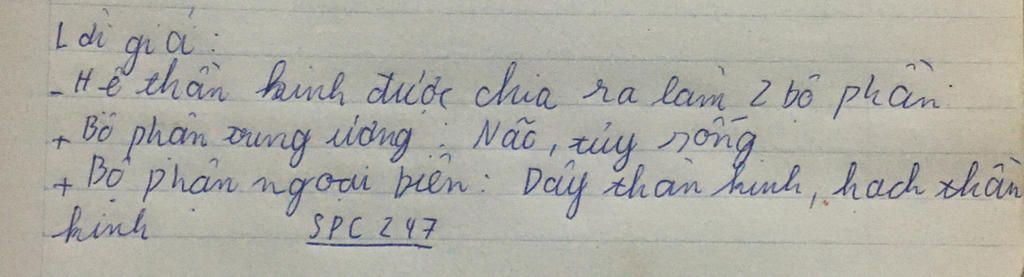 Lời giải:
- Hệ thần kinh được chia ra làm 2 bộ phận:
+ Bộ phận trung ương: Não, tủy sống
+ Bộ phận ngoại biên: Dây thần kinh, hạch thần
kinh SPC 247